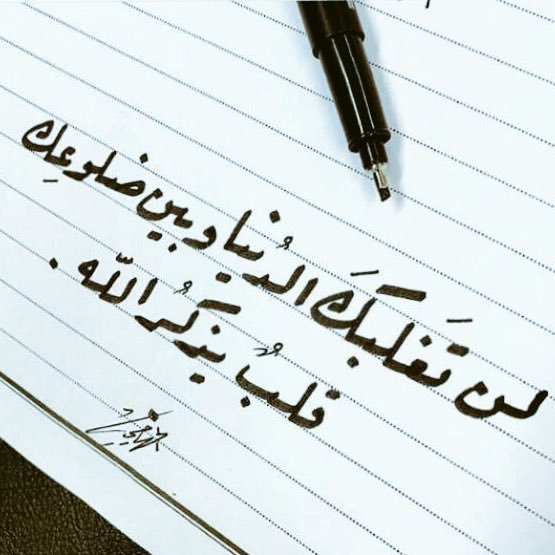 لن تَغلبَكَ الدُنيا وبين ضلوعِك
قلبٌ يذكُر اللّه .